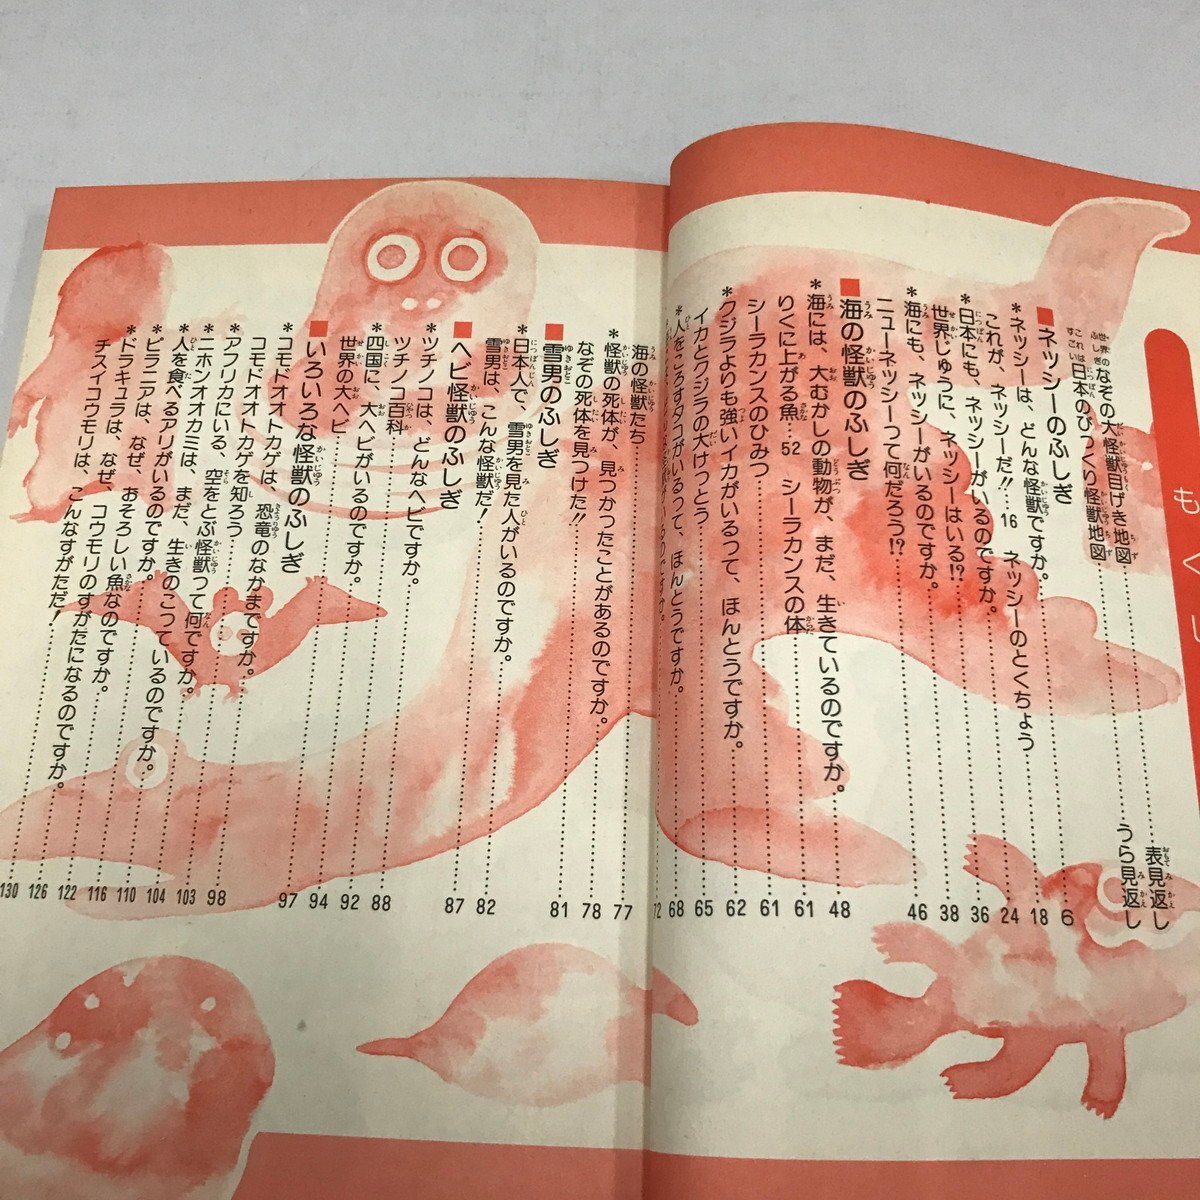 もく
世界のふしぎ なぞの大怪獣目げき地図……表見返し
これはすごい 日本のびっくり怪獣地図……うら見返し
■ネッシーのふしぎ
＊ネッシーは、どんな怪獣ですか。……6
これが、ネッシーだ!!…16 ネッシーのとくちょう……18
＊日本にも、ネッシーがいるのですか。……24
世界じゅうに、ネッシーはいる!?……36
＊海にも、ネッシーがいるのですか。……38
ニューネッシーって何だろう!?……46
■海の怪獣のふしぎ
＊海には、大むかしの動物が、まだ、生きているのですか。……48
りくに上がる魚…52 シーラカンスの体……61
シーラカンスのひみつ……61
＊クジラよりも強いイカがいるって、ほんとうですか。……62
イカとクジラの大けっとう……65
＊人をころすタコがいるって、ほんとうですか。……68
72
海の怪獣たち……77
＊怪獣の死体が、見つかったことがあるのですか。……78
なぞの死体を見つけた!!……81
■雪男のふしぎ
＊日本人で、雪男を見た人がいるのですか。……82
雪男は、こんな怪獣だ!……87
■ヘビ怪獣のふしぎ
＊ツチノコは、どんなヘビですか。……88
ツチノコ百科……92
＊四国に、大ヘビがいるのですか。……94
世界の大ヘビ……97
■いろいろな怪獣のふしぎ
＊コモドオオトカゲは、恐竜のなかまですか。……98
コモドオオトカゲを知ろう……103
＊アフリカにいる、空をとぶ怪獣って何ですか。……104
＊ニホンオオカミは、まだ、生きのこっているのですか。……110
＊人を食べるアリがいるのですか。……116
＊ピラニアは、なぜ、おそろしい魚なのですか。……122
＊ドラキュラは、なぜ、コウモリのすがたになるのですか。……126
チスイコウモリは、こんなすがただ!……130